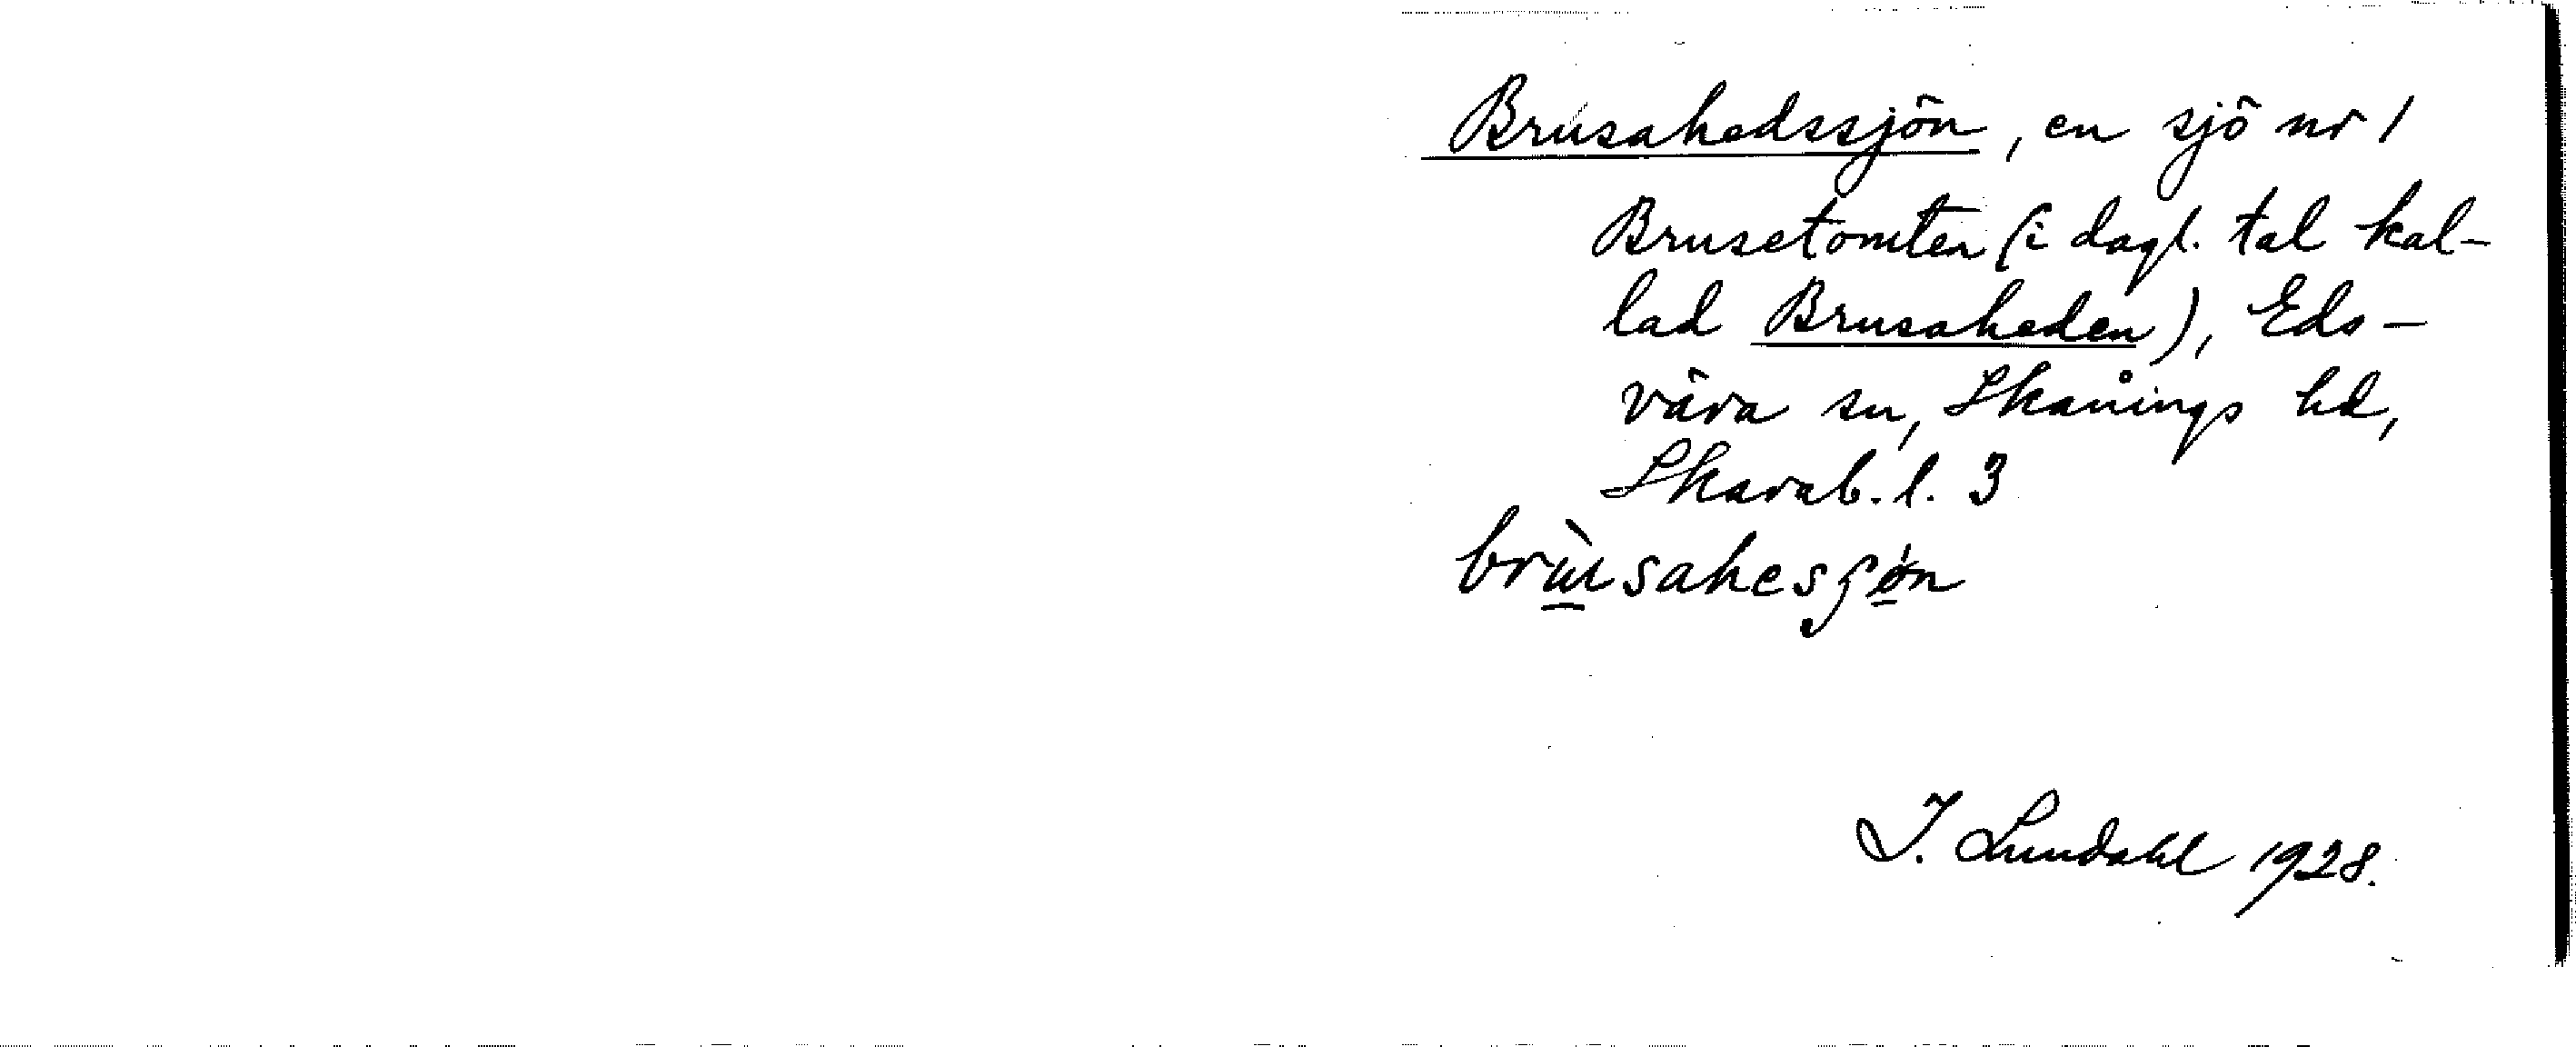 Brusahedssjön, en sjö nr 1
Brusetomten (i dagl. tal kal-
lad Brusaheden), Eds-
vära sn, Skånings hd,
Skarab. l. 3
brùsahesʃøn
I. Lundahl 1928.